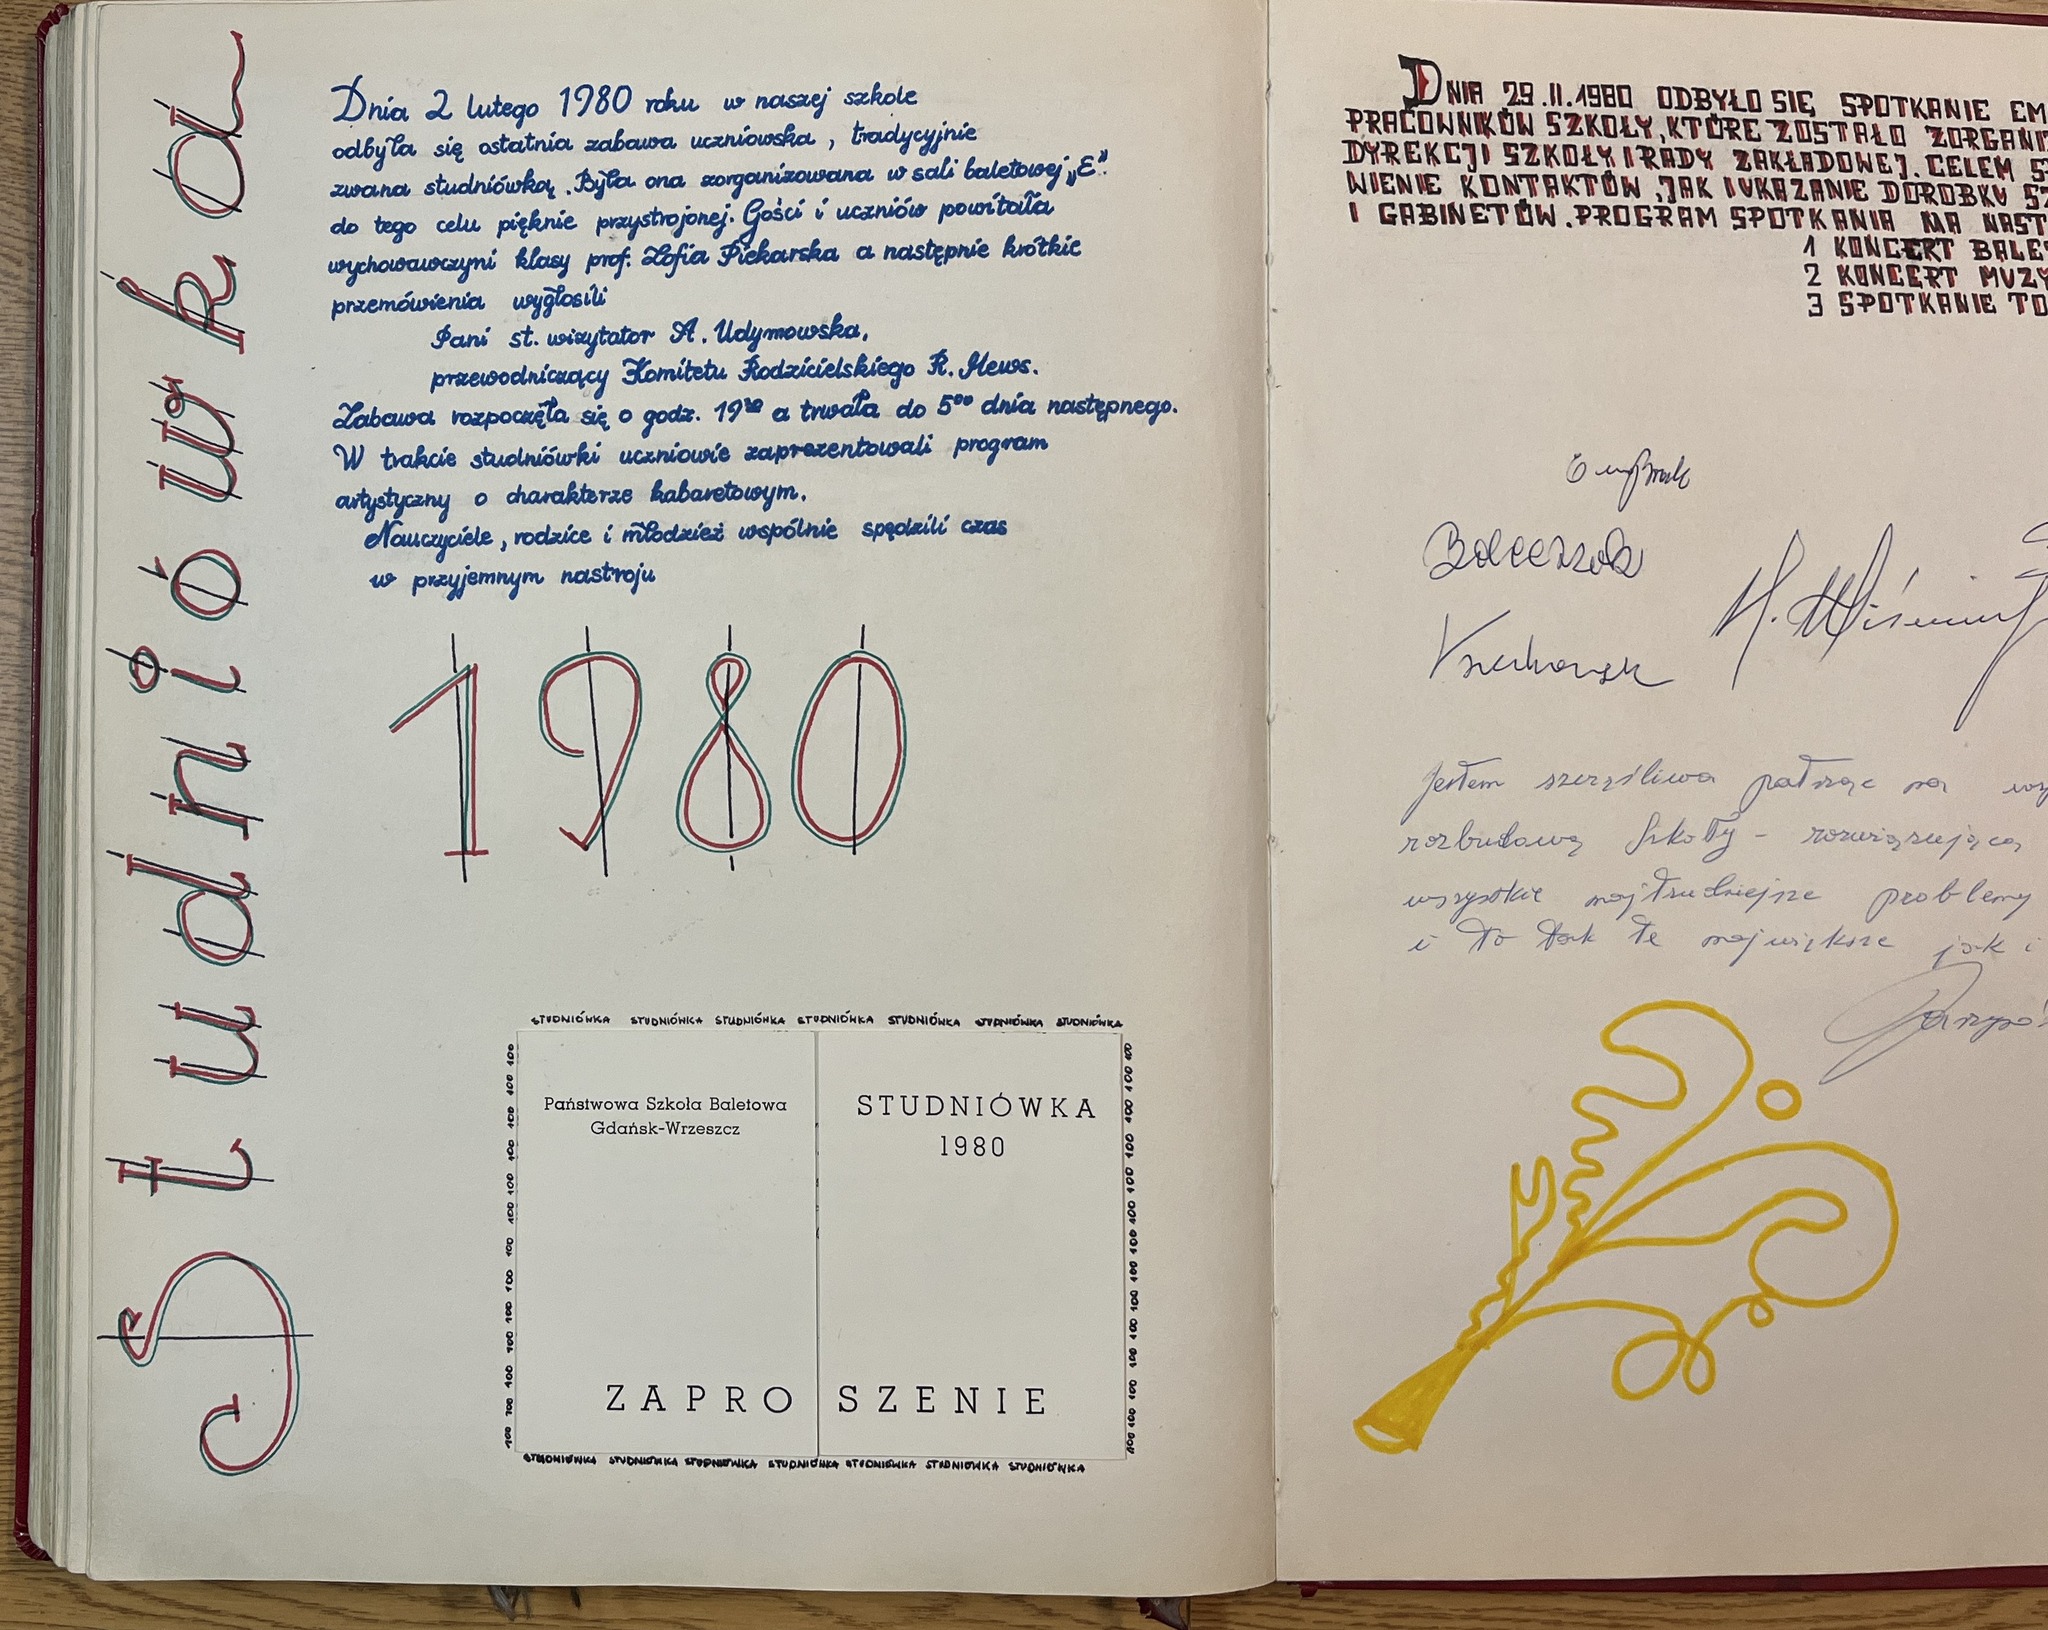 Studniówka
Dnia 2 lutego 1980 roku w naszej szkole
odbyła się ostatnia zabawa uczniowska, tradycyjnie
zwana studniówką. Była ona zorganizowana w sali baletowej „E".
do tego celu pięknie przystrojonej. Gości i uczniów powitała
wychowawczyni klasy prof. Zofia Piekarska a następnie krótkie
przemówienia wygłosili
Pani st. wizytator A. Udymowska,
przewodniczący Komitetu Rodzicielskiego R. Mews.
Zabawa rozpoczęła się o godz. 19 a trwała do 5⁰⁰ dnia następnego.
W trakcie studniówki uczniowie zaprezentowali program
artystyczny o charakterze kabaretowym.
Nauczyciele, rodzice i młodzież wspólnie spędzili czas
w przyjemnym nastroju
1980
STUDNIÓWKA STUDNIÓWKA STUDNIÓWKA STUDNIÓWKA STUDNIÓWKA STUDNIÓWKA STUDNIÓWKA
100 100 100 100 100 100 100 100 100 100 100 100 100 100
Państwowa Szkoła Baletowa
Gdańsk-Wrzeszcz
STUDNIÓWKA
1980
ZAPROSZENIE
100 100 100 100 100 100 100 100 100 100 100 100 100 100
STUDNIÓWKA STUDNIÓWKA STUDNIÓWKA STUDNIÓWKA STUDNIÓWKA STUDNIÓWKA STUDNIÓWKA
DNIA 29.II.1980 ODBYŁO SIĘ SPOTKANIE EM
PRACOWNIKÓW SZKOŁY, KTÓRE ZOSTAŁO ZORGANI
DYREKCJI SZKOŁY I RADY ZAKŁADOWEJ. CELEM S
WIENIE KONTAKTÓW, JAK I UKAZANIE DOROBKU SZ
I GABINETÓW. PROGRAM SPOTKANIA MA NAST
1 KONCERT BALE
2 KONCERT MUZY
3 SPOTKANIE TO
Jestem szczęśliwa patrząc na
rozbudowę Szkoły - rozwiązującą
wszystkie najtrudniejsze problemy
i to tak te największe jak i